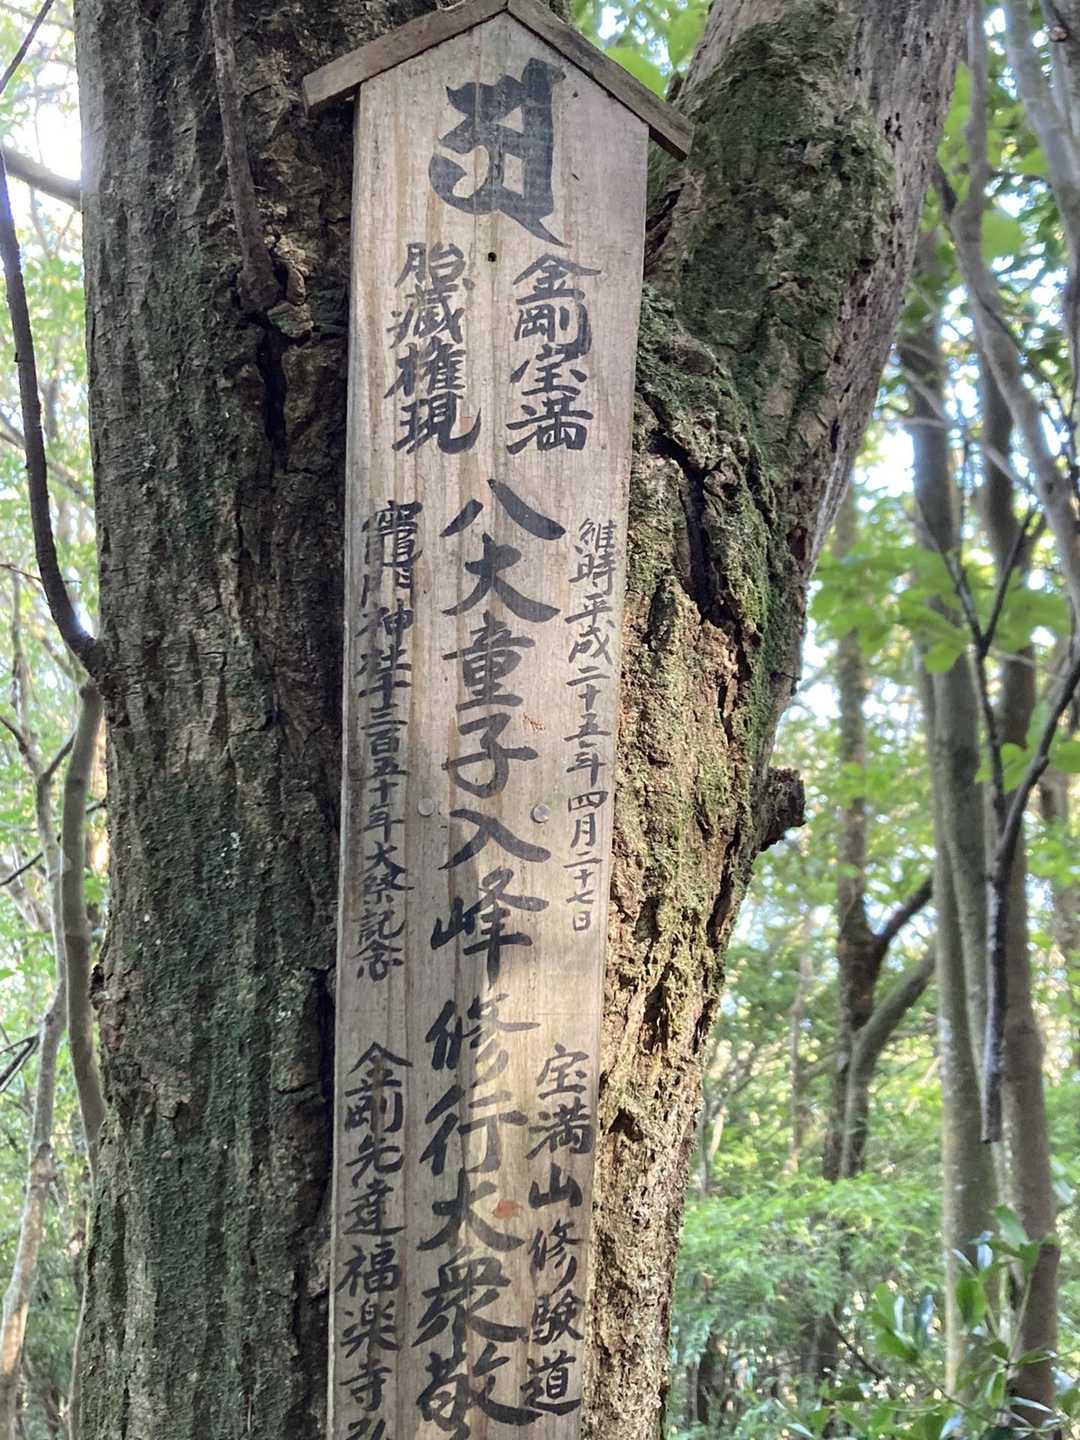 金剛宝満
胎蔵権現
維時平成二十五年四月二十七日
八大童子入峰修行大衆敬
竈門神社千三百五十年大祭記念
宝満山修験道
金剛先達福楽寺弘